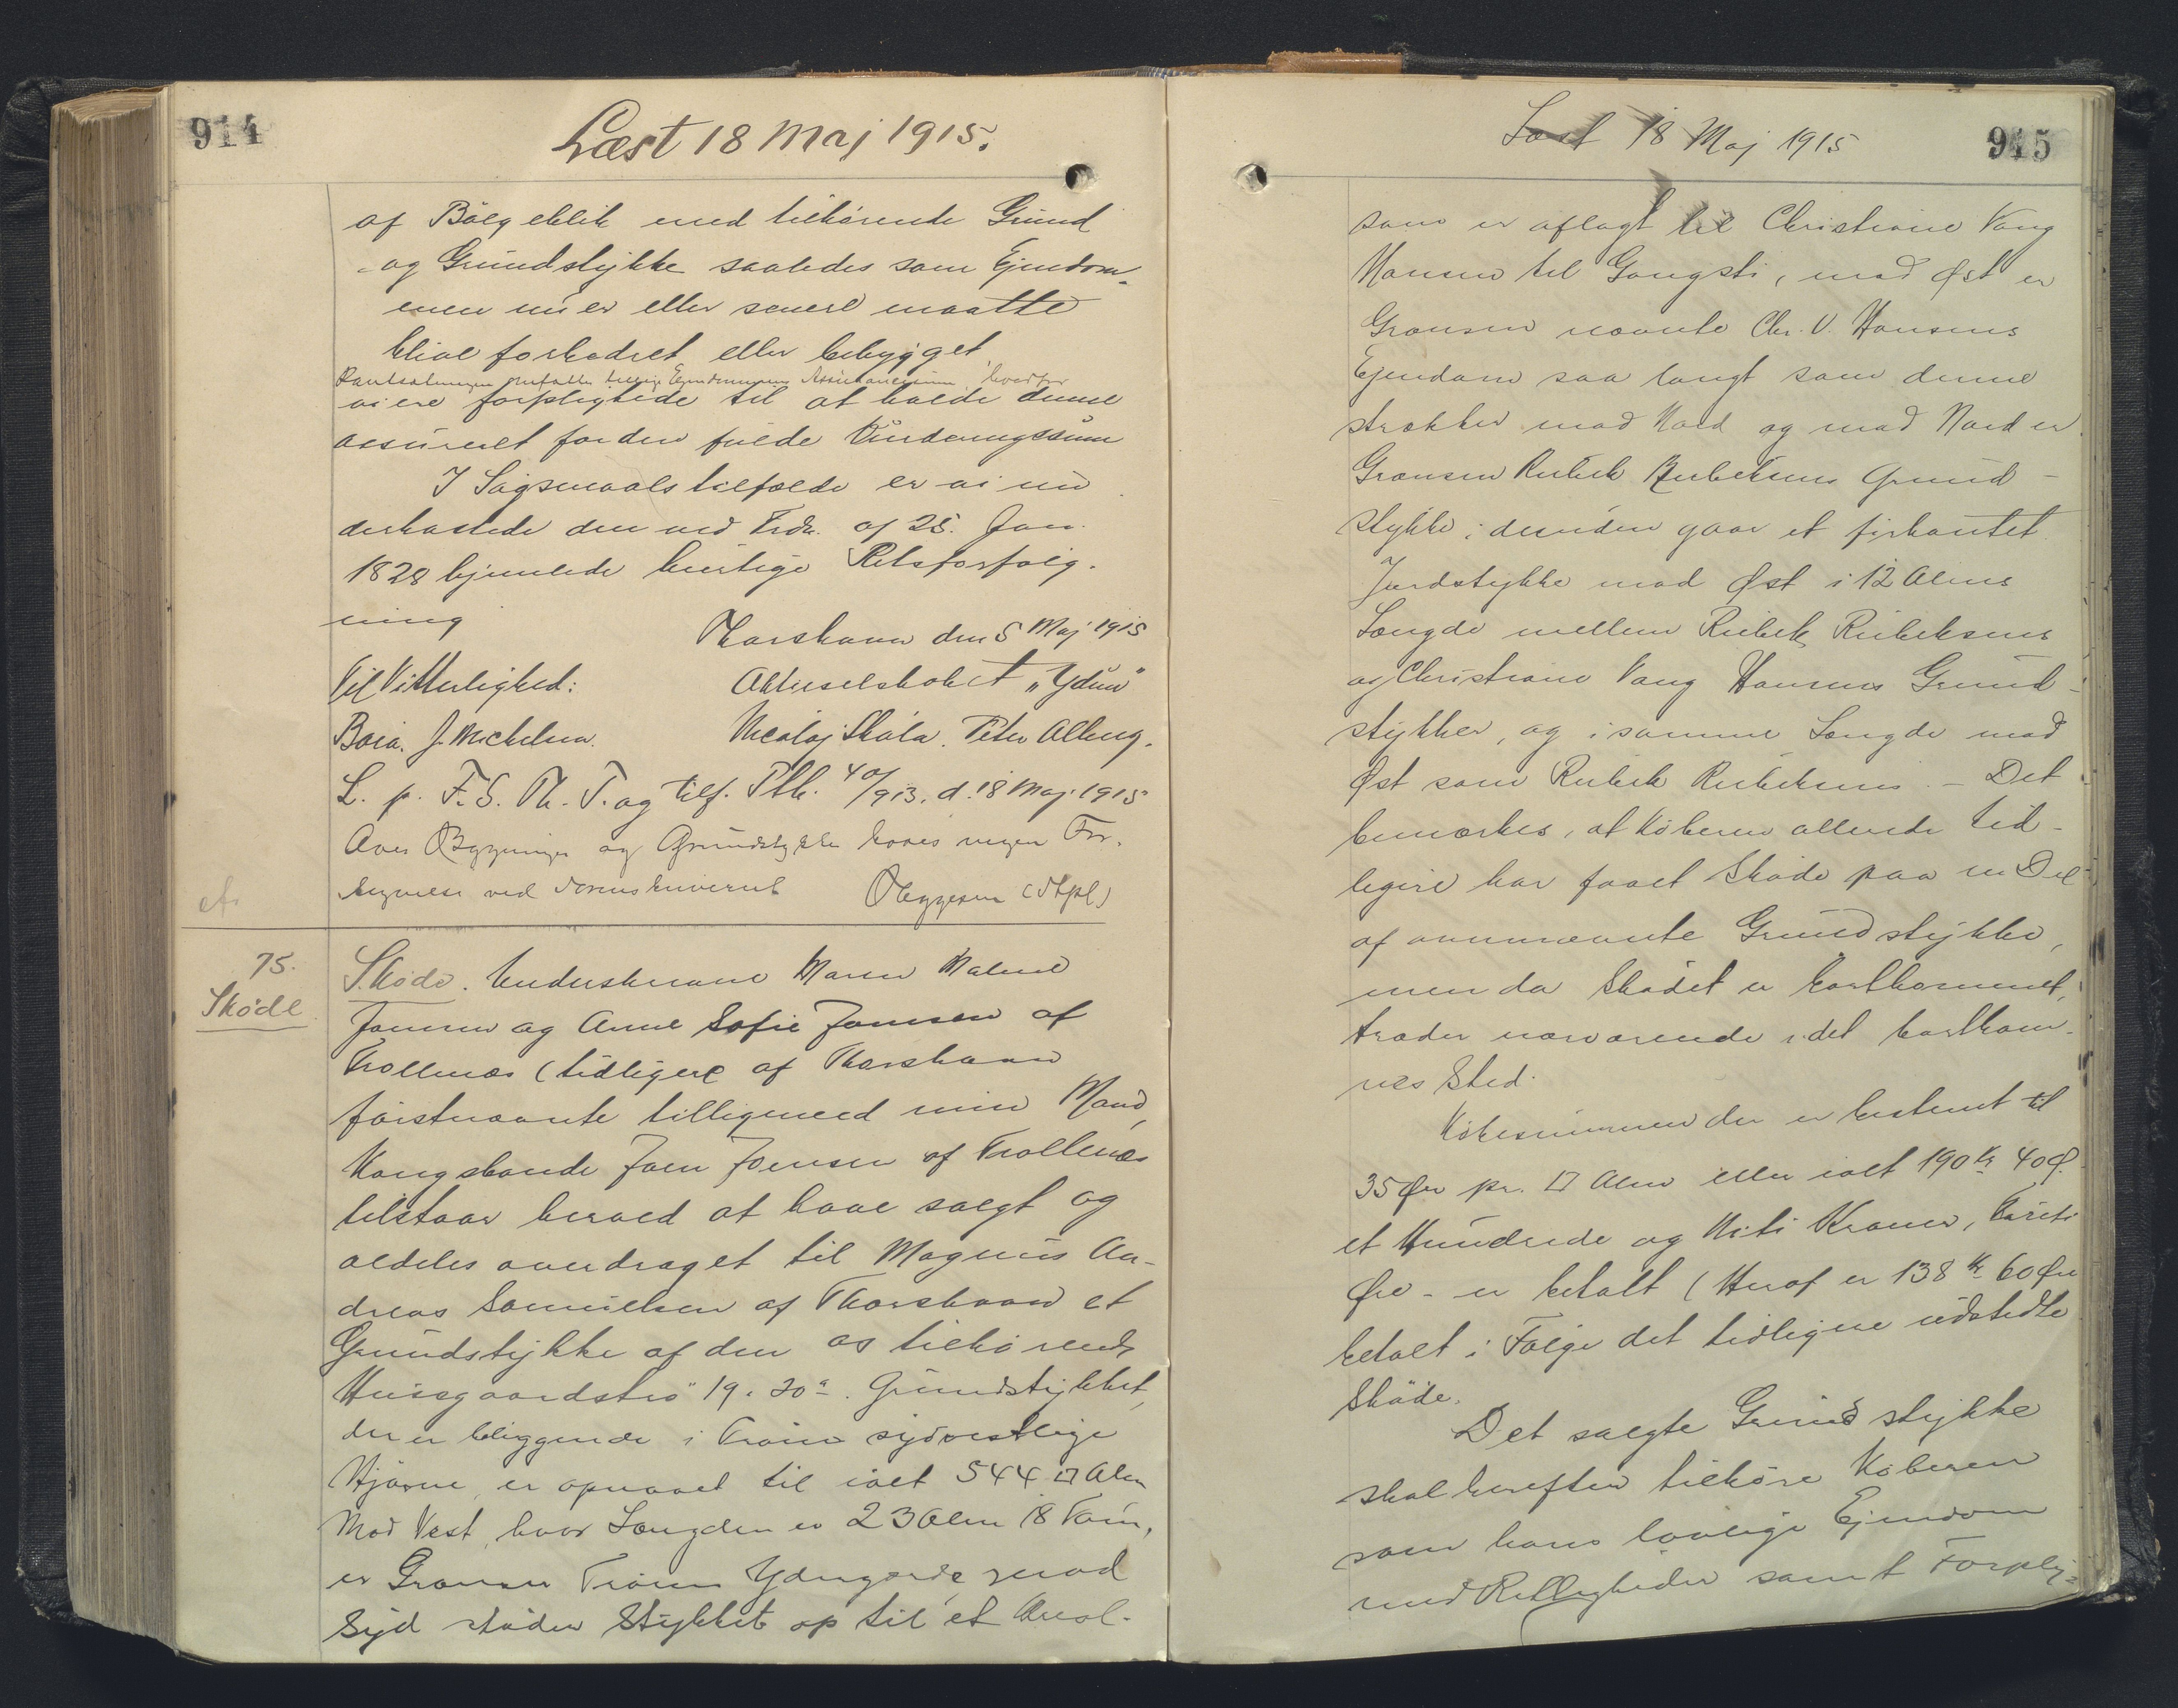 914
Læst 18 Maj 1915.
af Bölgeblik med tilhörende Grund
og Grundstykke saaledes som Ejendom-
men nu er eller senere maatte
blive forbedret eller bebygget.
Pantsætningen omfatter tillige Ejendommens Assurancesum, hvorfor
vi ere forpligtede til at holde denne
assureret for den fulde Vurderingssum
I Sagsmaalstilfælde er vi un
derkastede den ved Frdn. af 25. Jan.
1828 hjemlede hurtige Retsforfølg-
ning
Thorshavn den 5 Maj 1915
Til Vitterlighed:
Aktieselskabet "Ydun"
J. Michelsen.
Nicolaj Skála. Peter Alberg.
L. p. F. S. Th. T. og tilf. Ptb. 40/913. d. 18 Maj 1915
Over Bygninger og Grundstykke haves ingen For-
sikringsvæsenet
(Stpl)
75.
Skøde
Skøde. Undertegnede Maren Malene
Joensen og Anne Sofie Joensen af
Trollenæs (tidligere af Thorshavn
førstnævnte tilligemed min Mand,
Kongsbonde Joen Joensen af Trollenæs
tilstaar herved at have solgt og
aldeles overdraget til Magnus An-
dreas Samuelsen af Thorshavn et
Grundstykke af den os tilhørende
Husegaardstrø 19. 20a. Grundstykket,
der er beliggende i Trøens sydvestlige
Hjørne, er opmaalt til ialt 544 □ Alen
Mod Vest, hvor Længden er 23 Alen 18 Tom.,
er Grænsen Trøens Ydregærde, mod
Syd støder Stykket op til et Areal-
915
Læst 18 Maj 1915
som er aflagt til Christiane Vang
Hansen til Gangsti, mod Øst er
Grænsen nævnte Chr. V. Hansens
Ejendom saa langt som denne
strækker mod Nord og mod Nord er
Grænsen Rubek Rubeksens Grund-
stykke; desuden gaar et firkantet
Jordstykke mod Øst i 12 Alens
Længde mellem Rubek Rubeksens
og Christiane Vang Hansens Grund-
stykker, og i samme Længde mod
Øst som Rubek Rubeksens. - Det
bemærkes, at Køberen allerede tid-
ligere har faaet Skøde paa en Del
af omnævnte Grundstykke,
men da Skødet er bortkommet,
træder nærværende i det bortkom-
nes Sted.
Købesummen der er bestemt til
35 Øre pr. □ Alen eller ialt 190 Kr 40 Ø.
et Hundrede og Niti Kroner, Fireti
Øre - er betalt (Heraf er 138 Kr 60 Øre
betalt i Følge det tidligere udstedte
Skøde.
Det solgte Grundstykke
skal herefter tilhøre Køberen
som hans lovlige Ejendom
med Rettigheder samt Forplig-